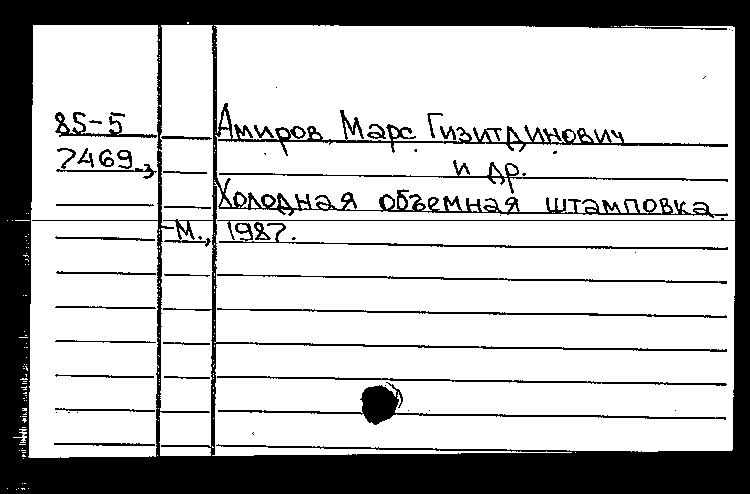 85-5 Амиров Марс Гизитдинович
7469-3 и др.
Холодная объемная штамповка.
-М., 1987.